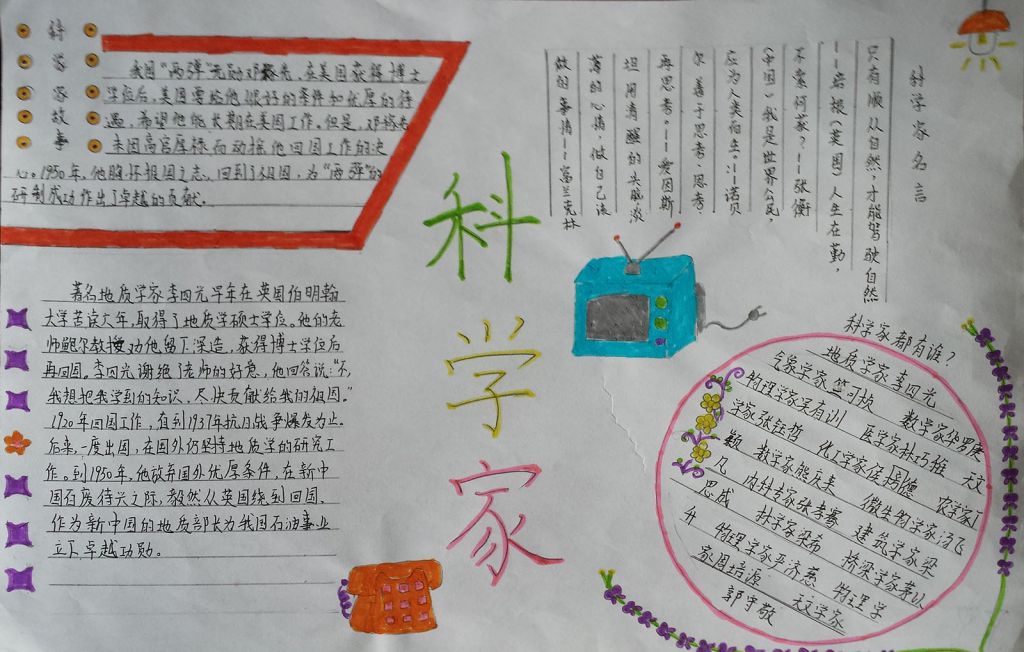 科学家故事
我国“两弹”元勋邓稼先,在美国获得博士
学位后,美国要给他很好的条件和优厚的待
遇,希望他能长期在美国工作。但是,邓稼先
未因高官厚禄而动摇他回国工作的决
心。1950年,他胸怀祖国之志、回到了祖国,为“两弹”的
研制成功作出了卓越的贡献。
著名地质学家李四光早年在英国伯明翰
大学苦读六年,取得了地质学硕士学位。他的老
师鲍尔教授劝他留下深造,获得博士学位后
再回国。李四光谢绝了老师的好意,他回答说:“不,
我想把我学到的知识、尽快贡献给我的祖国。”
1920年回国工作,直到1937年抗日战争爆发为止。
后来,一度出国,在国外仍坚持地质学的研究工
作。到1950年,他放弃国外优厚条件,在新中
国百废待兴之际,毅然从英国绕到回国。
作为新中国的地质部长为我国石油事业
立下卓越功勋。
科学家
科学家名言
只有顺从自然,才能驾驶自然
——培根(英国)人生在勤,
不索何获?——张衡
(中国)我是世界公民,
应为人类而生。——诺贝
尔 善于思考、思考、
再思考。——爱因斯
坦 用清醒的头脑,淡
薄的心情,做自己该
做的事情——富兰克林
科学家都有谁?
地质学家李四光
气象学家竺可桢 数学家华罗庚
物理学家吴有训 医学家林巧稚 天文
学家张钰哲 化工学家侯德 农学家丁
颖 数学家熊庆来 微生物学家汤飞
凡 内科专家张孝骞 建筑学家梁
思成 林学家梁希 桥梁学家茅以
升 物理学家严济慈 物理学
家周培源 天文学家
郭守敬